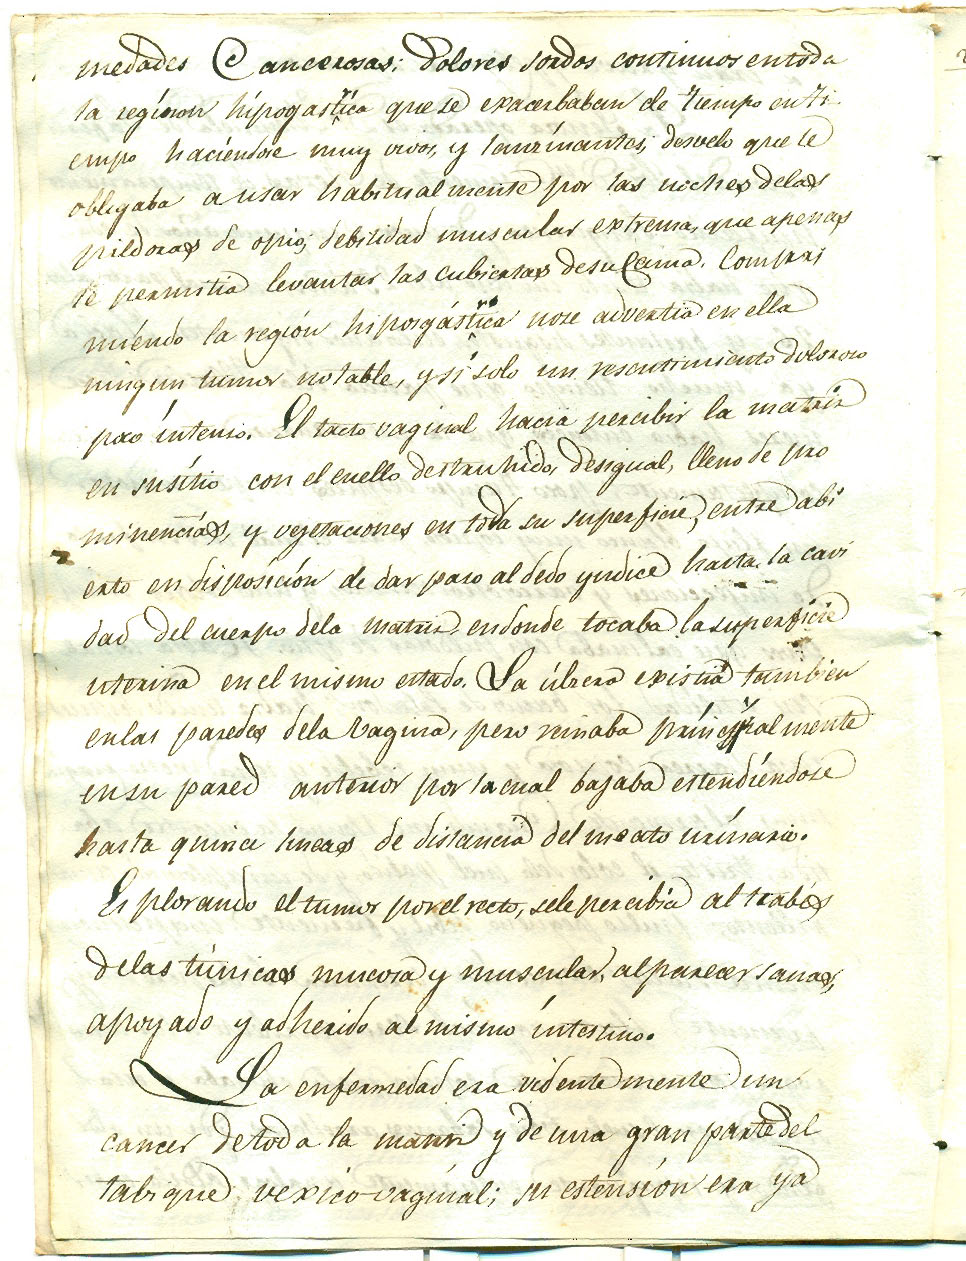 medades Cancerosas; dolores sordos continuos entoda
la regíonon hípogastríca quese exacerbaban de tiempo en ti
empo haciéndose muy vivos, y lanzinantes; desvelo que le
obligaba a usar habitualmente por las noches delas
pildoras de opio; debilidad muscular extrema, que apenas
le permitia levantar las cubiertas desu Cama. Compri
miéndo la región hiposgástrica nose advertia en ella
ningun tumor notable, y sí solo un resentimiento doloroso
poco íntenso. El tacto vaginal hacia percibir la matriz
en susítio con el cuello destruhido, desigual, lleno de pro
minencias, y vegetaciones en toda su superficie, entre abi
erto en disposición de dar paso al dedo yndice hasta la cavi
dad del cuerpo dela matriz, endonde tocaba la superficie
uterina en el mismo estado. La úlcera existia tambien
enlas paredes dela vagina, pero reinaba príncipalmente
en su pared anterior por la cual bajaba estendiéndose
hasta quince lineas de distancia del meato urínario.
Esplorando el tumor por el recto, sele percibia al trabés
delas túnicas mucosa y muscular, al parecer sanas,
apoyado y adherido al mismo íntestino.
La enfermedad era videntemente un
cancer detoda la matriz y de una gran parte del
tabique vexico-vagínal; su estensíon era ya